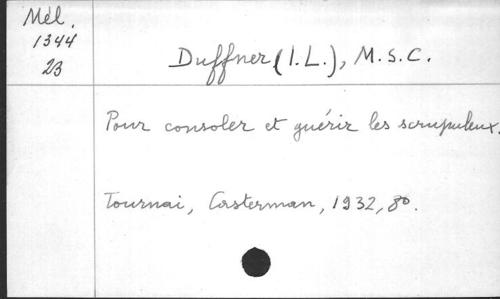 Mél.
1344
23
Duffner (I.L.), M.S.C.
Pour consoler et guérir les scrupuleux.
Tournai, Casterman, 1932, 8°.